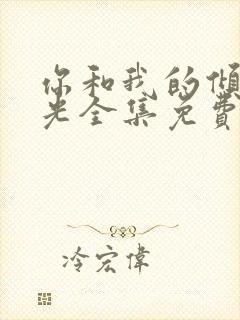 你和我的倾
光全集免费
冷宏伟